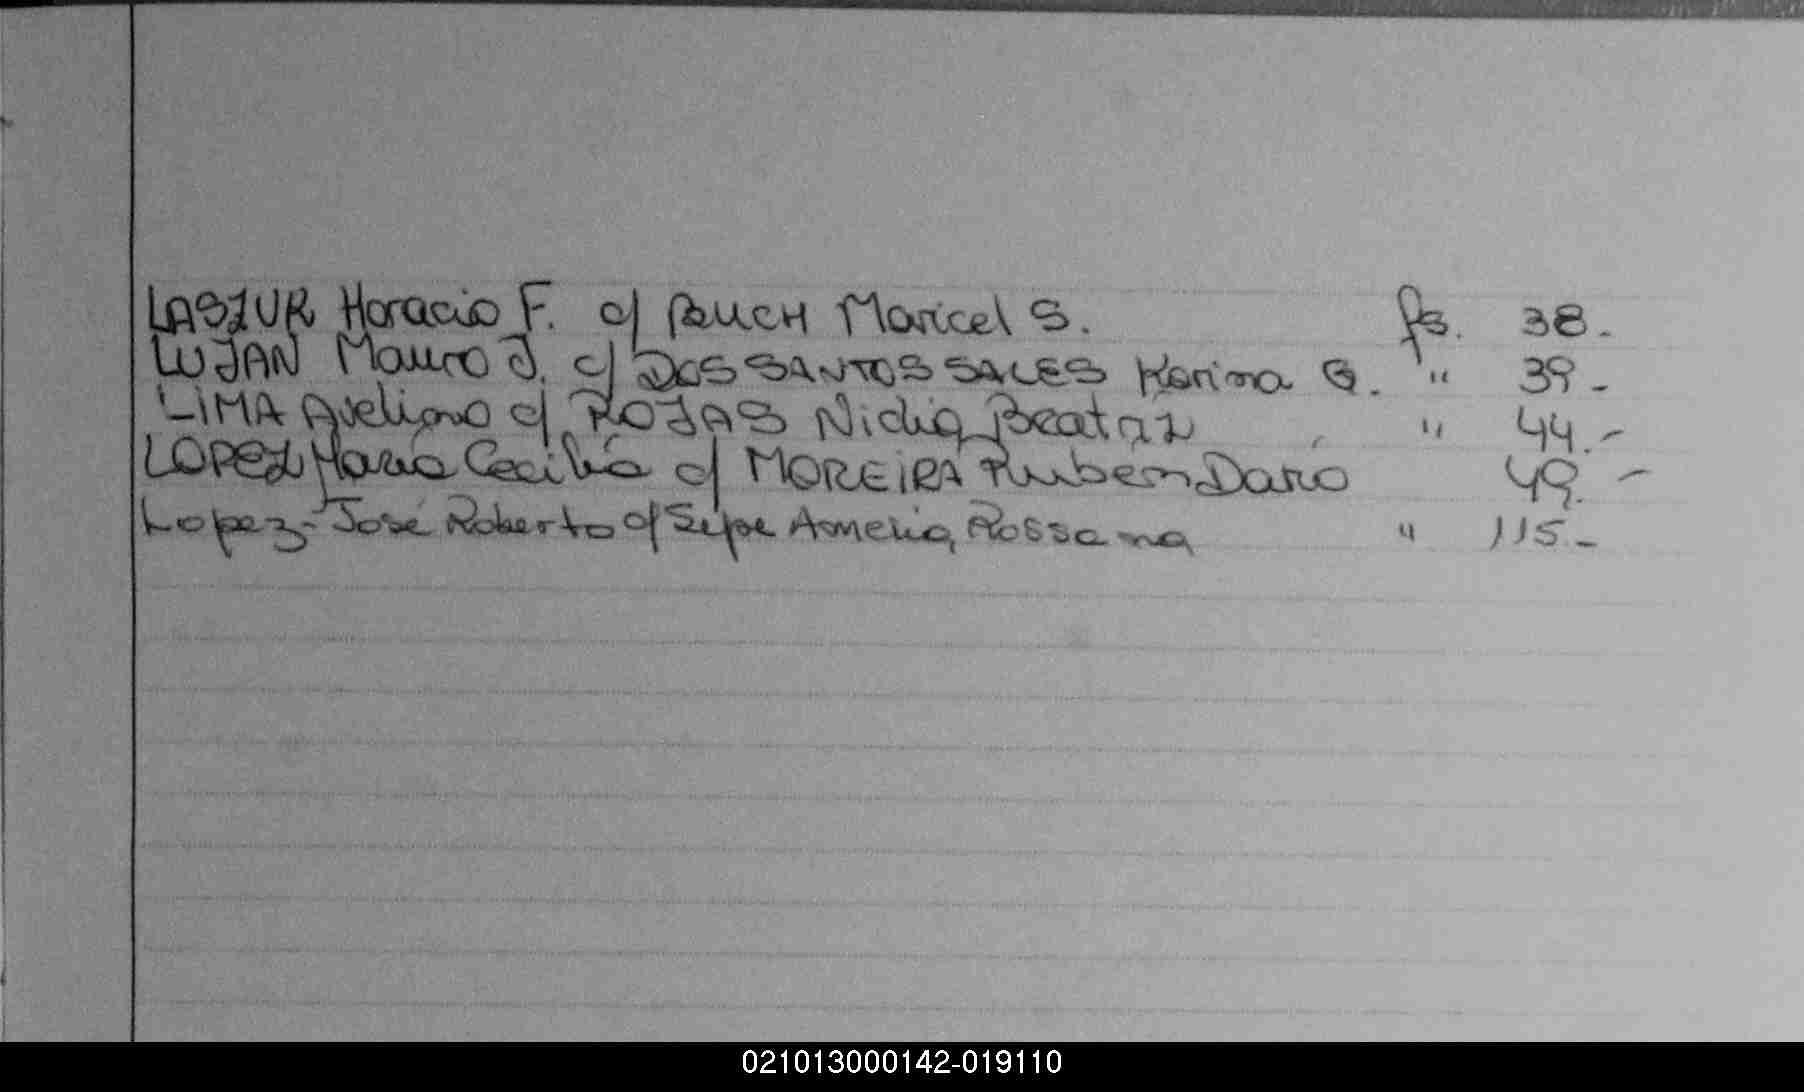 LASZUR Horacio F. c/ PAUCH Maricel S. fs. 38.-
LUJAN Mauro J. c/ DOS SANTOS SALES Karina G. " 39-
LIMA Avelino c/ ROJAS Nidia Beatriz " 44.-
LOPEZ Maria Cecilia c/ MOREIRA Ruben Dario 49.-
Lopez- José Roberto c/ Sepe Amelia Rossana " 115.-
021013000142-019110